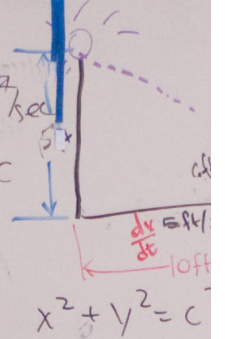 /sec
5
C
dx
dt
5 ft/
10ft
x² + y² = c